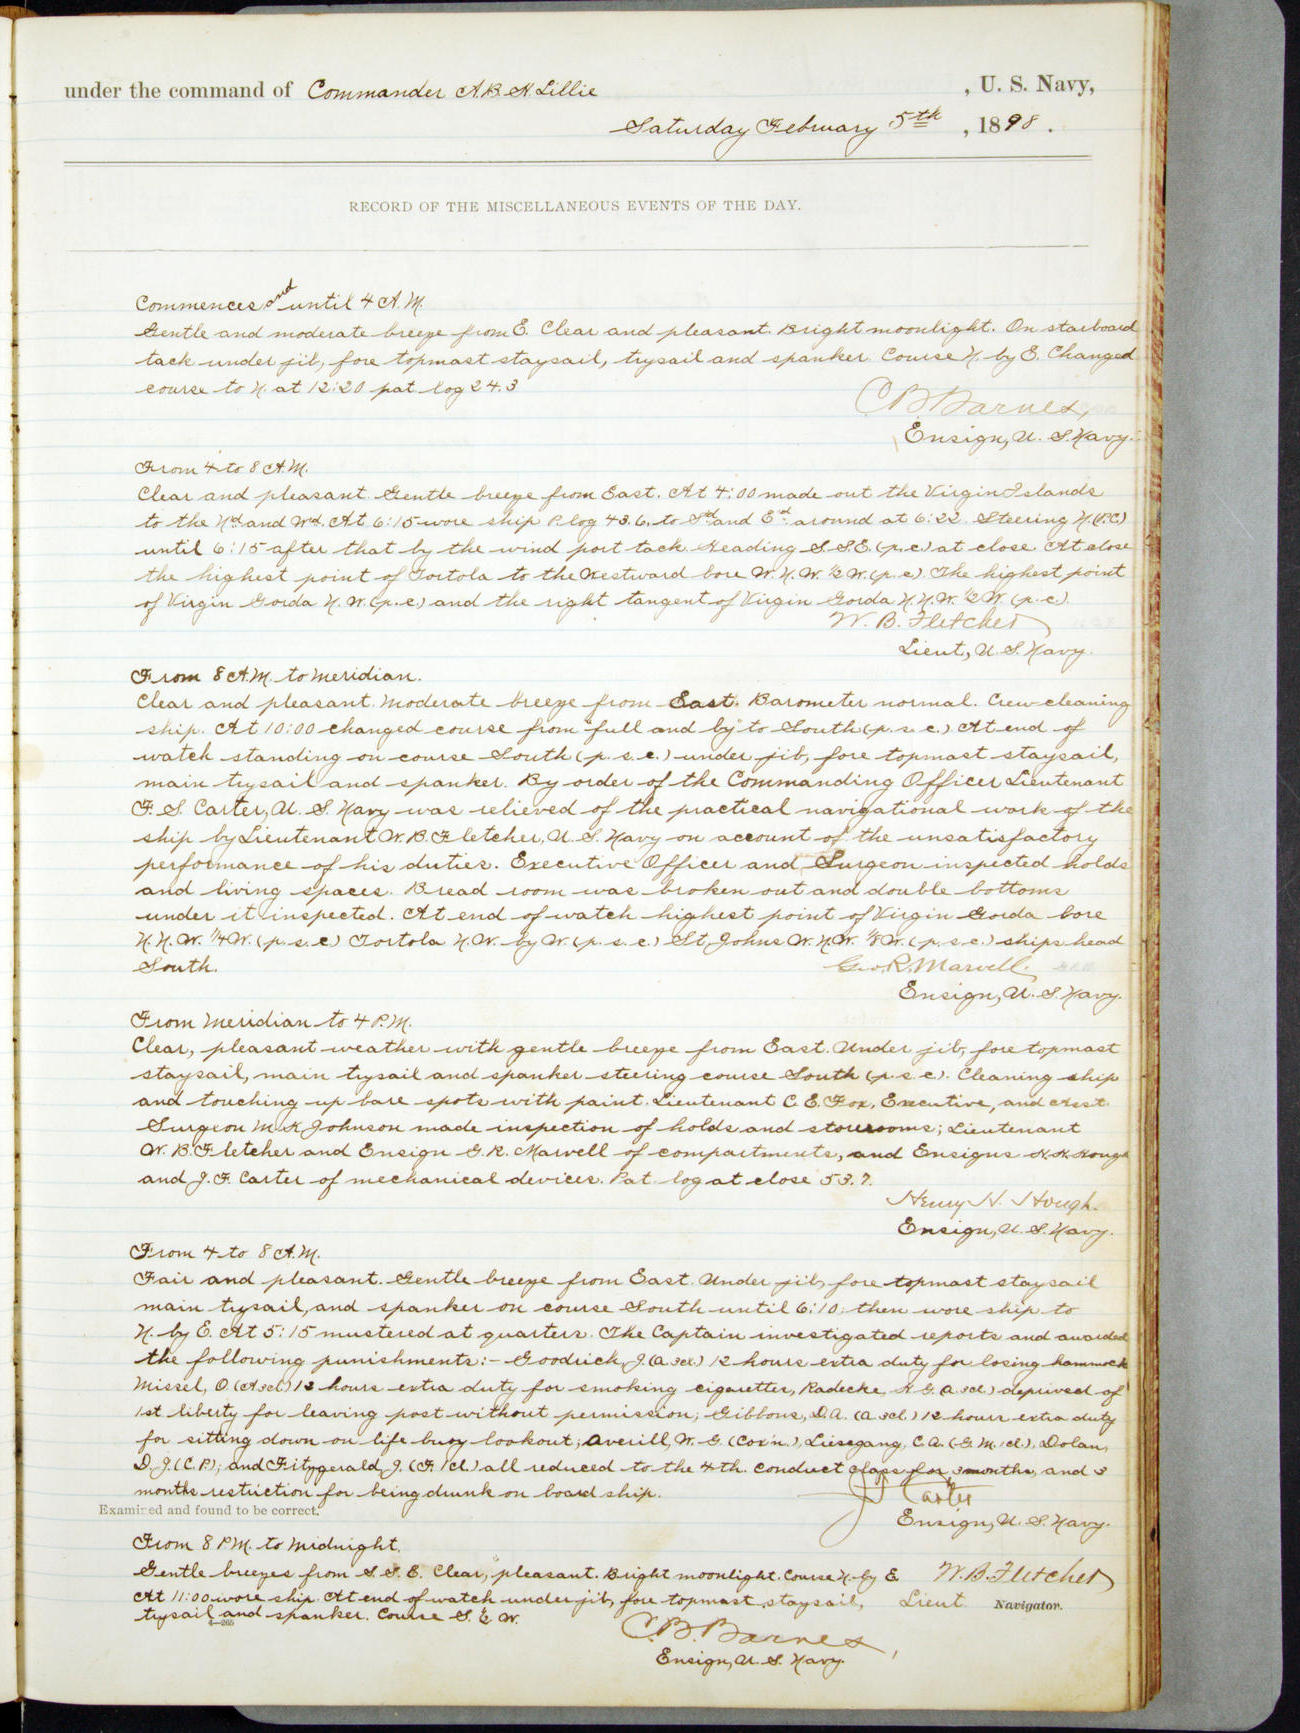 under the command of Commander A.B.H. Lillie, U. S. Navy,
Saturday February 5th, 1898.
RECORD OF THE MISCELLANEOUS EVENTS OF THE DAY.
Commences and until 4 A.M.
Gentle and moderate breeze from E. Clear and pleasant. Bright moonlight. On starboard
tack under jib, fore topmast staysail, trysail and spanker. Course N. by E. Changed
course to N. at 12:20 pat. log 24.3
C.B. Barnes,
Ensign, U. S. Navy.
From 4 to 8 A.M.
Clear and pleasant. Gentle breeze from East. At 4:00 made out the Virgin Islands
to the Nd and Wd. At 6:15 wore ship P. log 43.6, to Sd and Ed around at 6:22. Steering N. (P.C)
until 6:15 after that by the wind port tack. Heading S.S.E. (p.c) at close. At close
the highest point of Tortola to the Westward bore W.N.W. 1/2 W. (p.c.) The highest point
of Virgin Gorda N.W. (p.c.) and the right tangent of Virgin Gorda N.N.W. 1/2 W. (p.c.).
W. B. Fletcher
Lieut, U. S. Navy.
From 8 A.M. to meridian.
Clear and pleasant. Moderate breeze from East. Barometer normal. Crew cleaning
ship. At 10:00 changed course from "full and by" to South (p.s.c.) At end of
watch standing on course South (p.s.c.) under jib, fore topmast staysail,
main trysail and spanker. By order of the Commanding Officer Lieutenant
F. S. Carter, U. S. Navy was relieved of the practical navigational work of the
ship by Lieutenant W. B. Fletcher, U. S. Navy on account of the unsatisfactory
performance of his duties. Executive Officer and Surgeon inspected holds
and living spaces. Bread room was broken out and double bottoms
under it inspected. At end of watch highest point of Virgin Gorda bore
N.N.W. 1/4 W. (p.s.c) Tortola N.W. by W. (p.s.c.) St. Johns W.N.W. 1/8 W. (p.s.c.) ships head
South.
Geo. R. Marvell.
Ensign, U. S. Navy.
From meridian to 4 P.M.
Clear, pleasant weather with gentle breeze from East. Under jib, fore topmast
staysail, main trysail and spanker steering course South (p.s.c). Cleaning ship
and touching up bare spots with paint. Lieutenant C. E. Fox, Executive, and Asst.
Surgeon M. K. Johnson made inspection of holds and storerooms; Lieutenant
W. B. Fletcher and Ensign G. R. Marvell of compartments, and Ensigns H. H. Hough
and J. F. Carter of mechanical devices. Pat. log at close 53.7.
Henry H. Hough.
Ensign, U. S. Navy.
From 4 to 8 A.M.
Fair and pleasant. Gentle breeze from East. Under jib, fore topmast staysail
main trysail, and spanker on course South until 6:10, then wore ship to
N. by E. At 5:15 mustered at quarters. The Captain investigated reports and awarded
the following punishments:- Goodrick, J. (A 3cl.) 12 hours extra duty for losing hammock
Missel, O (A 3cl) 12 hours extra duty for smoking cigarettes, Radecke, H. G. (A 3cl.) deprived of
1st liberty for leaving post without permission; Gibbons, D.A. (A 3cl.) 12 hours extra duty
for sitting down on life buoy lookout; Averill, W. G. (Cox'n.), Liesegang, C. A. (G.M. 1cl.), Dolan,
D. J. (C.P.); and Fitzgerald, J. (F. 1cl.) all reduced to the 4th. conduct class for 3 months, and 3
months restriction for being drunk on board ship.
J F Carter
Ensign, U. S. Navy.
Examined and found to be correct.
From 8 P.M. to midnight.
Gentle breezes from S.S.E. Clear, pleasant. Bright moonlight. Course N. by E
At 11:00 wore ship. At end of watch under jib, fore topmast staysail,
trysail and spanker. Course S. 1/2 W.
W. B. Fletcher
Lieut Navigator.
4—265
C. B. Barnes,
Ensign, U. S. Navy.